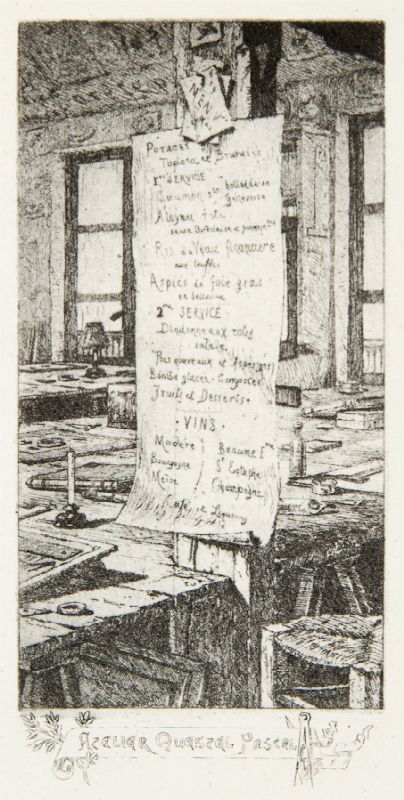 MENU
POTAGES
Tapioca et
1er SERVICE
Saumon sce hollandaise
Génevoise
Aloyau roti
sauce Bordelaise et
Ris de Veau financière
aux truffes
Aspics de foie gras
en bellevue
2me SERVICE
Dindonneaux rotis
salade
Pois nouveaux et Asperges
Bombe glacée. Compotes
Fruits et Desserts.
. VINS .
Madère Beaune 1ere
Bourgogne St Estèphe
Champagne
Café et Liqueurs
ATELIER QUESTEL PASCAL